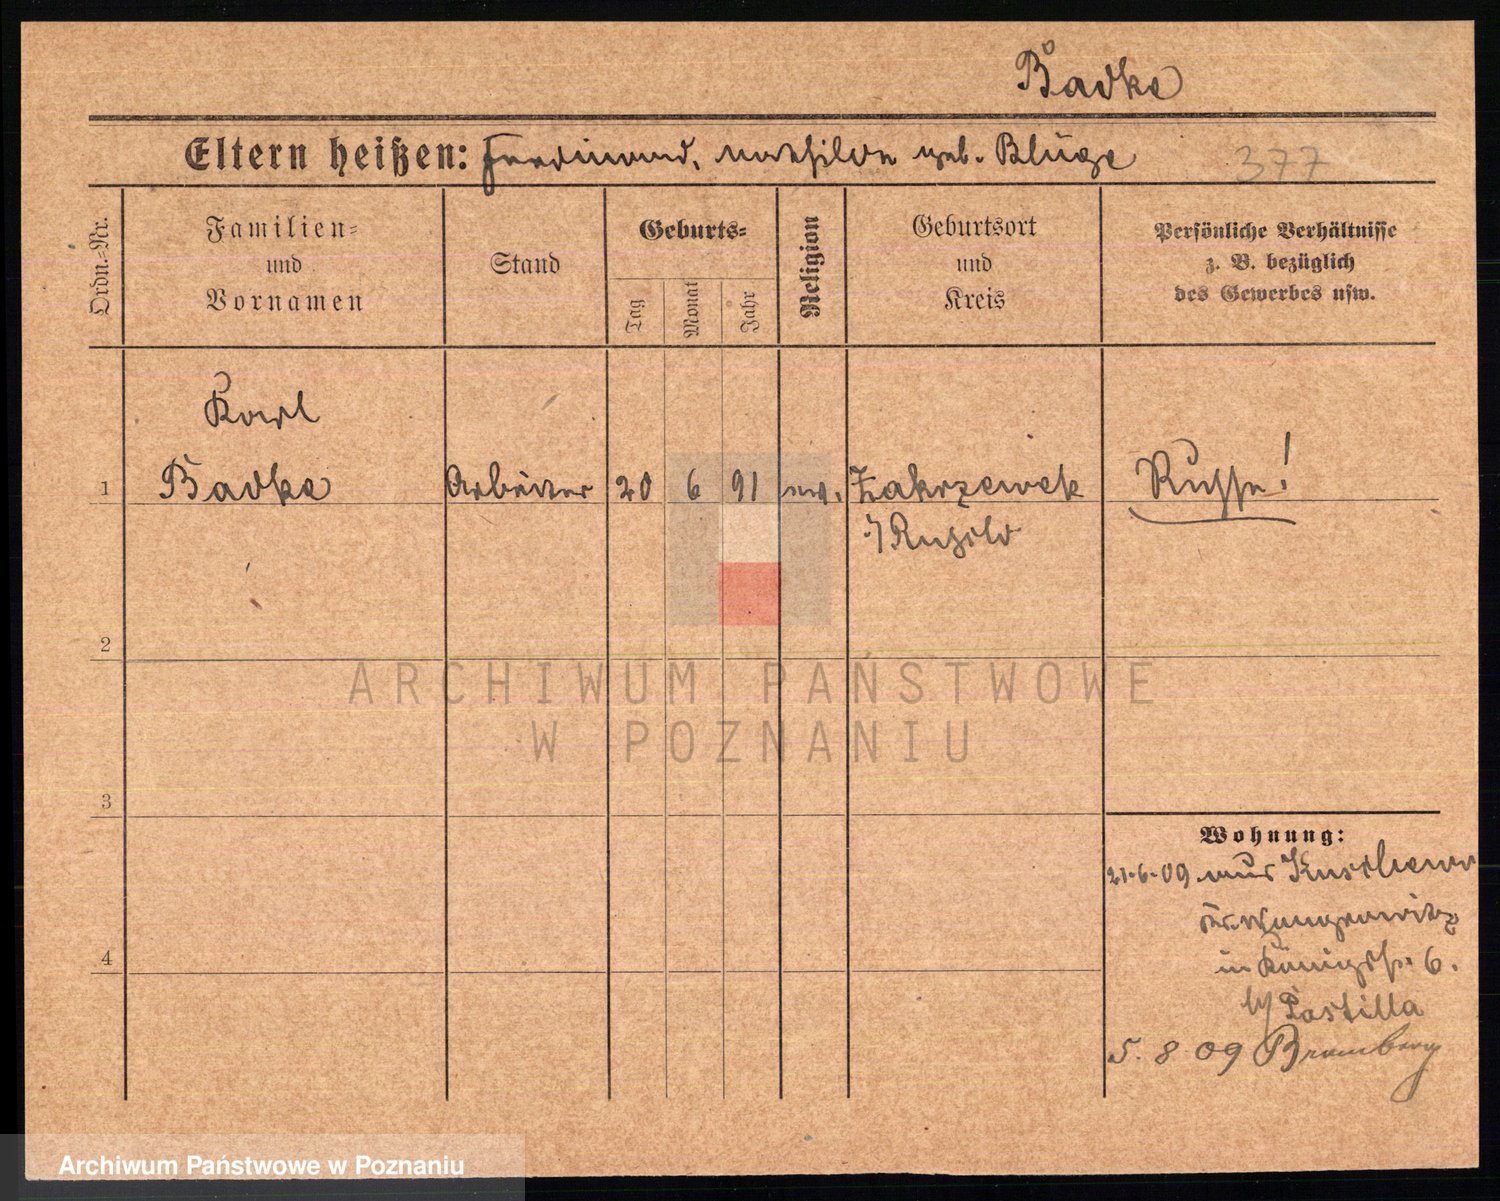 Badke
Eltern heißen: Ferdinand, Mathilde geb. Kluge
377
Ordn.-Nr.
Familien-
und
Vornamen
Stand
Geburts-
Tag
Monat
Jahr
Religion
Geburtsort
und
Kreis
Persönliche Verhältnisse
z. B. bezüglich
des Gewerbes usw.
Karl
1 Badke Arbeiter 20 6 91 ev. Zakrzewek Russe!
i/ Rußld
2
3
4
Wohnung:
21.6.09 aus
Kr. Wongrowitz
in Königstr. 6.
b/ Pastilla
5. 8 09 Bromberg
ARCHIWUM PAŃSTWOWE
W POZNANIU
Archiwum Państwowe w Poznaniu